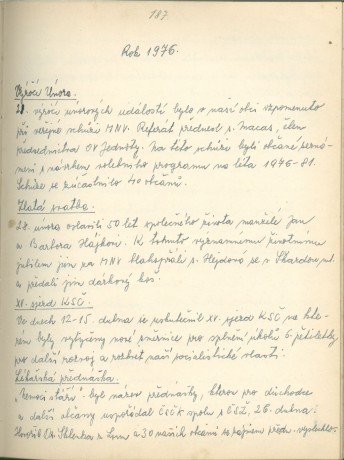 187.
Rok 1976.
Výročí Února.
výročí únorových událostí bylo v naší obci vzpomenuto
při veřejné schůzi MNV. Referát přednesl s. Macas, člen
předsednictva OV Jednoty. Na této schůzi byli občané sezná-
meni s návrhem volebního programu na léta 1976-81.
Schůze se zúčastnilo 40 občanů.
Zlatá svatba.
28. února oslavili 50 let společného života manželé Jan
a Barbora Hájkovi. K tomuto významnému životnímu
jubileu jim za MNV blahopřáli s. Hejdová se s.
a předali jim dárkový koš.
XV. sjezd KSČ.
Ve dnech 12-15. dubna se uskutečnil XV. sjezd KSČ na kte-
rém byly vytyčeny nové směrnice pro splnění úkolů 6. pětiletky
pro další rozvoj a rozkvět naší socialistické vlasti.
Lékařská přednáška.
"Nemoci stáří" byl název přednášky, kterou pro důchodce
a další občany uspořádal ČSČK spolu s ČSŽ, 26. dubna.
Hovořil a 30 našich občanů se zájmem předn. vyslechlo.